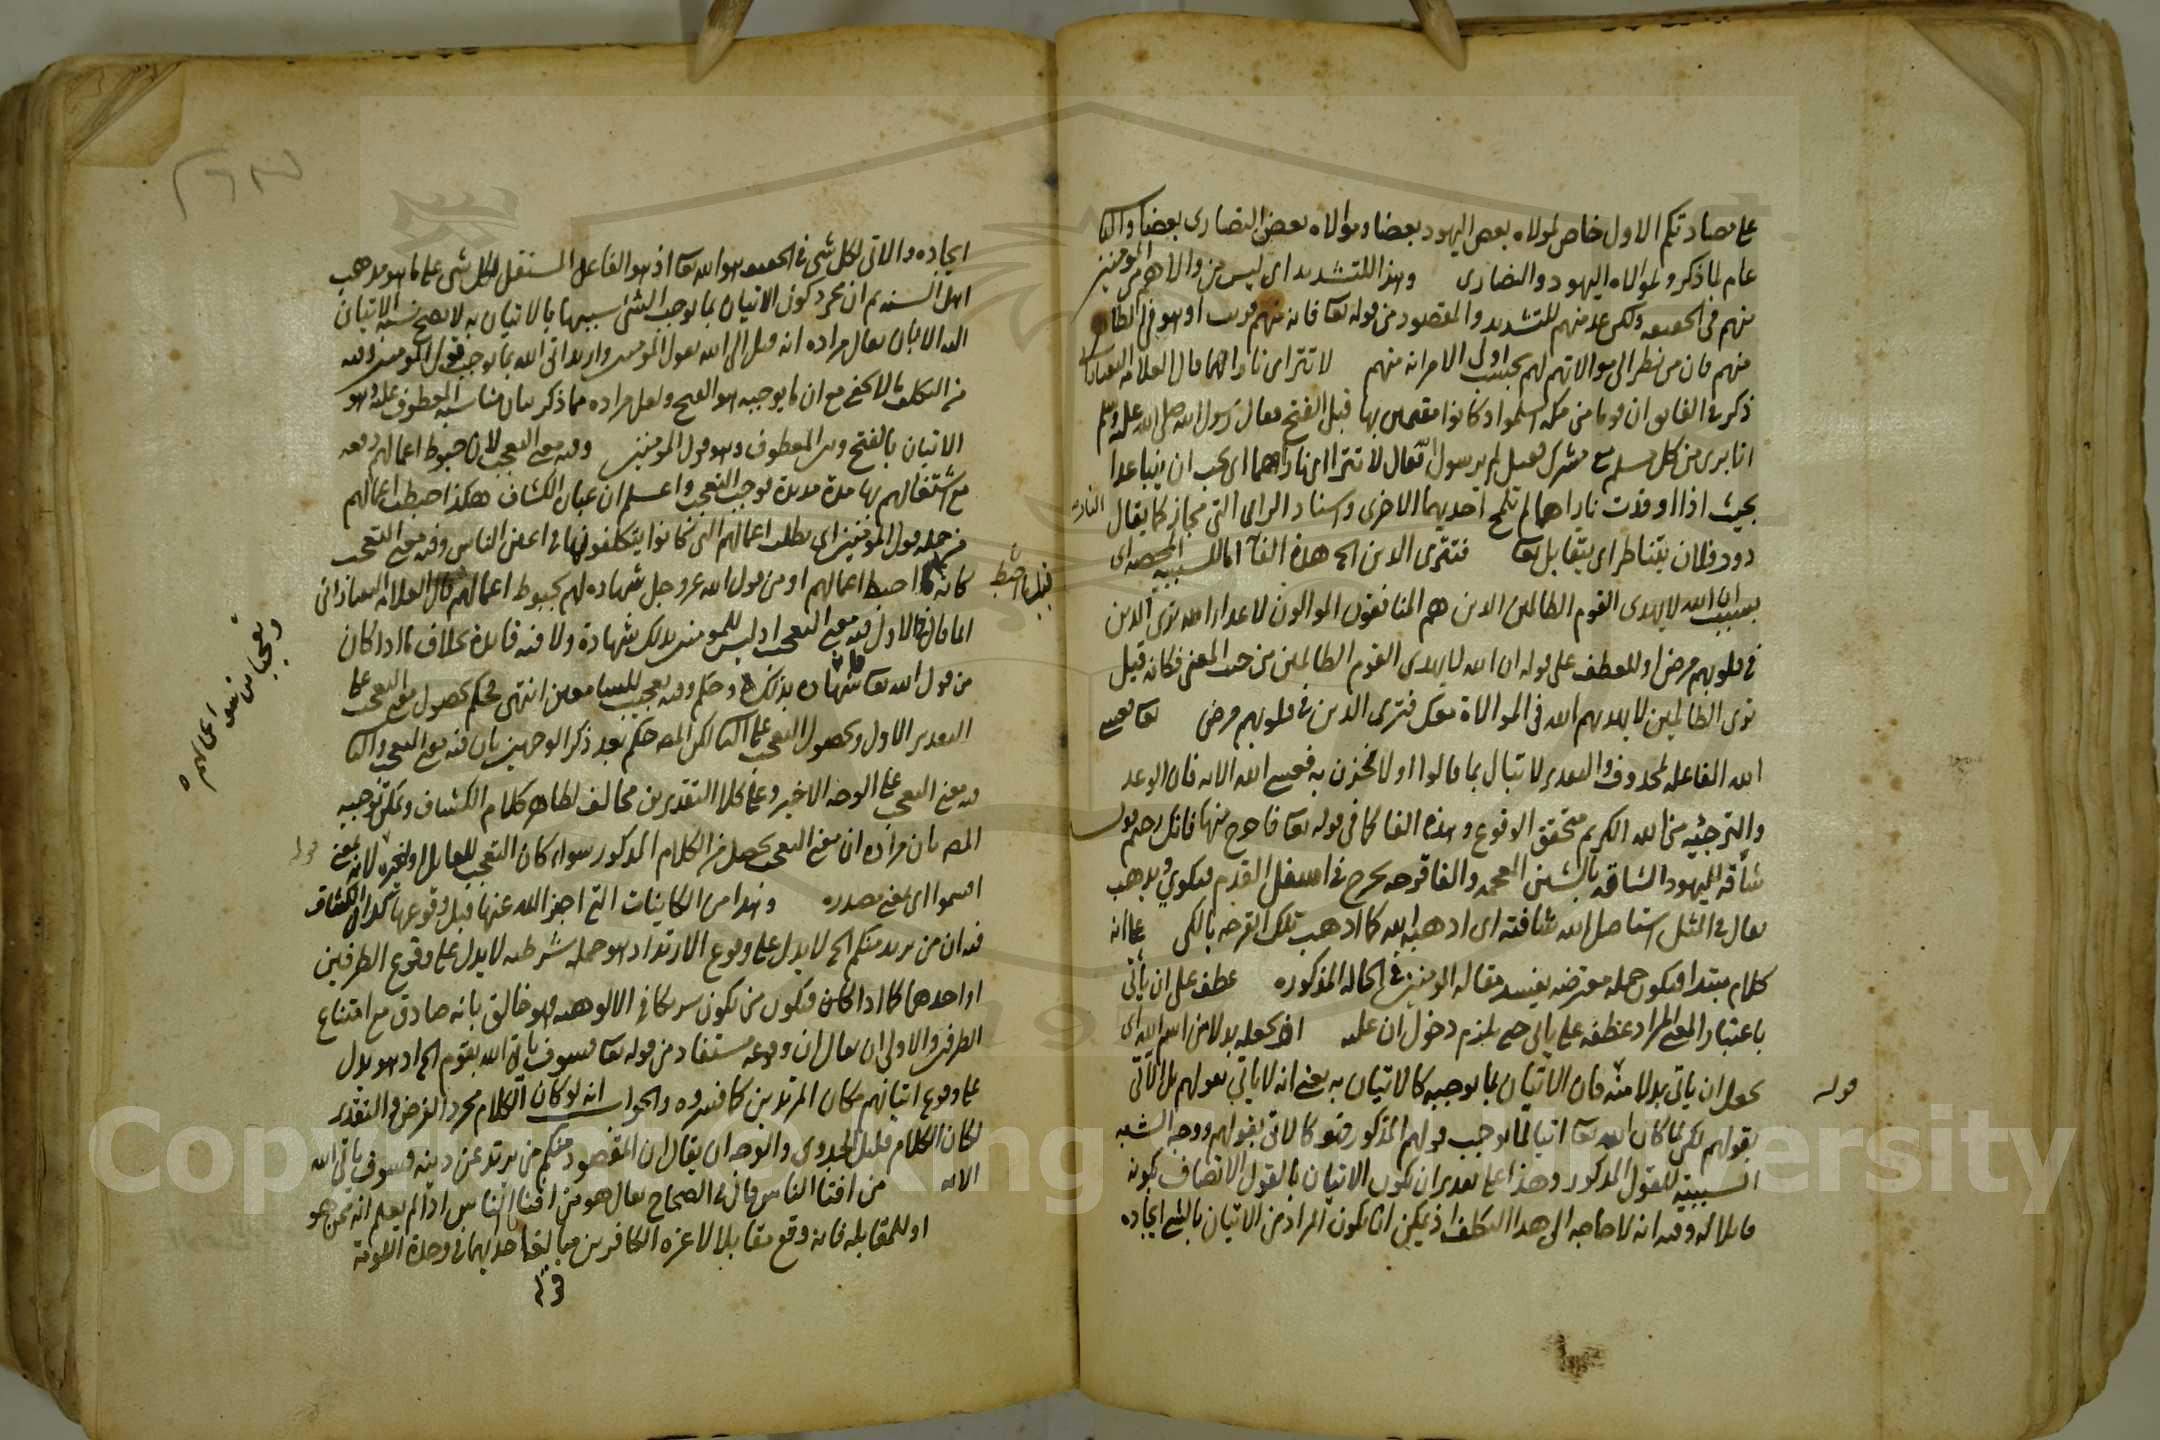 على مضادتكم الاول خاص لموالاه بعض اليهود بعضا وموالاه بعض النصارى بعضا والثا
عام لما ذكر ولموالاه اليهود والنصارى وهذا للتشديد اى ليس من والاهم من المومنين
منهم فى الحقيقه ولكن عد منهم للتشديد والمقصود من قوله تعا فانه منهم او هو فى الظاهر
منهم فان من نظر الى موالاتهم لهم يحسب اول الامر انه منهم لا تتراى ناراهما قال العلامه التفتازانى
ذكر فى الفايق ان قوما من مكه اسلموا وكانوا مقيمين بها قبل الفتح فقال رسول الله صلى الله عليه وسلم
انا برى من كل مسلم مع مشرك فقيل لم يا رسول الله قال لا تتراى ناراهما اى يجب ان يتباعدا
بحيث اذا اوقدت ناراهما لم تلمح احديهما الاخرى واسناد الراى الى النار مجاز كما يقال
دور فلان يتناظر اى يتقابل فترى الذين الخ هذه الفا اما للسببيه المحضه اى
بسبب ان الله لا يهدى القوم الظالمين الذين هم المنافقون الموالون لاعداء الله ترى الذين
فى قلوبهم مرض او للعطف على قوله ان الله لا يهدى القوم الظالمين من حيث المعنى فكانه قيل
ترى الظالمين لا يهديهم الله فى الموالاة فترى الذين فى قلوبهم مرض فعسى
الله الفا عله لمحذوف والتقدير لا تبال بما قالوا او لا تحزن به فعسى الله الايه فان الوعد
والترجيه من الله الكريم متحقق الوقوع وهذه الفا كما فى قوله تعا فاخرج منها فانك رجيم
شأفة اليهود الشافه بالشين المعجمه والفا قرحه تخرج فى اسفل القدم فتكوى فيذهب
يقال فى المثل استاصل الله شافته اى اذهبه الله كما اذهب تلك القرحه بالكى على انه
كلام مبتدا فيكون جمله معترضه مقاله المومنين فى الحاله المذكوره عطف على ان ياتى
باعتبار المعنى المراد عطفه على ياتى حتى يلزم دخول ان عليه او يجعله بدلا من اسم الله اى
يجعل ان ياتى بدلا منه فان الاتيان بما يوجبه كالاتيان به يعنى انه لا ياتى بقولهم بل الاتى
بقولهم لكن لما كان الله تعا اتيا لما يوجب قولهم المذكور فهو كالاتى بقولهم ووجه الشبه
السببية للقول المذكور وهذا على تقدير ان يكون الاتيان بالقول الاتصاف بكونه
قائلا له وفيه انه لا حاجه الى هذا التكلف اذ يمكن ان يكون المراد من الاتيان بالشى ايجاده
قوله
ايجاده والاتى لكل شى فى الحقيقه هو الله تعا اذ هو الفاعل المستقل لكل شى على ما هو مذهب
اهل السنه ثم ان مجرد كون الاتيان بما يوجب الشى شبيها بالاتيان به لا يصح نسبه الاتيان
اليه الا بان يقال مراده انه قيل اتى الله بقول المومنين واريد اتى الله بما يوجب قول المومنين وفيه
من التكلف ما لا يخفى مع ان ما يوجبه هو الفتح ولعل مراده مما ذكر بيان مناسبة المعطوف عليه وهو
الاتيان بالفتح وبين المعطوف وهو قول المومنين وفيه معنى التعجب لان حبوط اعمالهم دفعه
مع اشتغالهم بها مدة مديدة يوجب التعجب واعلم ان عبارة الكشاف هكذا حبطت اعمالهم
من جمله قول المومنين اى بطلت اعمالهم التى كانوا يتكلفونها فى اعين الناس وفيه معنى التعجب
كانه قيل ما احبط اعمالهم او من قول الله عز وجل شهاده لهم بحبوط اعمالهم قال العلامه التفتازانى
انما قال فى الاول فيه معنى التعجب اذ ليس للمومنين بذلك شهادة ولا فيه فايدة بخلاف ما اذا كان
من قول الله تعا فانه شهاده بذلك وحكم وفيه تعجيب للسامعين انتهى فحكم بحصول معنى التعجب على
التقدير الاول وبحصول التعجيب على الثا لكن المص حكم بعد ذكر الوجهين بان فيه معنى التعجب والثا
فيه معنى التعجب على الوجه الاخير وعلى كلا التقديرين مخالف لظاهر كلام الكشاف ويمكن توجيه
المص بان مراده ان معنى التعجب يحصل من الكلام المذكور سواء كان التعجب للقايل او لغيره لانه بمعنى
اقسموا اى بمعنى مصدره وهذا من الكائنات التى اخبر الله عنها قبل وقوعها كذا فى الكشاف
فيه ان من يرتد منكم الخ لا يدل على وقوع الارتداد اذ هو جمله شرطيه لا يدل على وقوع الطرفين
او احدهما كما اذا كان فيكون من يكون شريكا فى الالوهيه فهو خالق بانه صادق مع امتناع
الطرفين والاولى ان يقال ان وقوعه مستفاد من قوله تعا فسوف ياتى الله بقوم الخ اذ هو يدل
على وقوع اتيانهم مكان المرتدين كما فسروه والجواب انه لو كان الكلام مجرد الفرض والتقدير
لكان الكلام قليل الجدوى والوجه ان يقال ان المقصود منكم من يرتد عن دينه فسوف ياتى الله
الايه من افنا الناس قال فى الصحاح يقال هو من افناء الناس اذا لم يعلم انه ممن هو
او للمقابله فانه وقع مقابلا لاعزه الكافرين مبالغتا احديهما فى وحدة اللومة